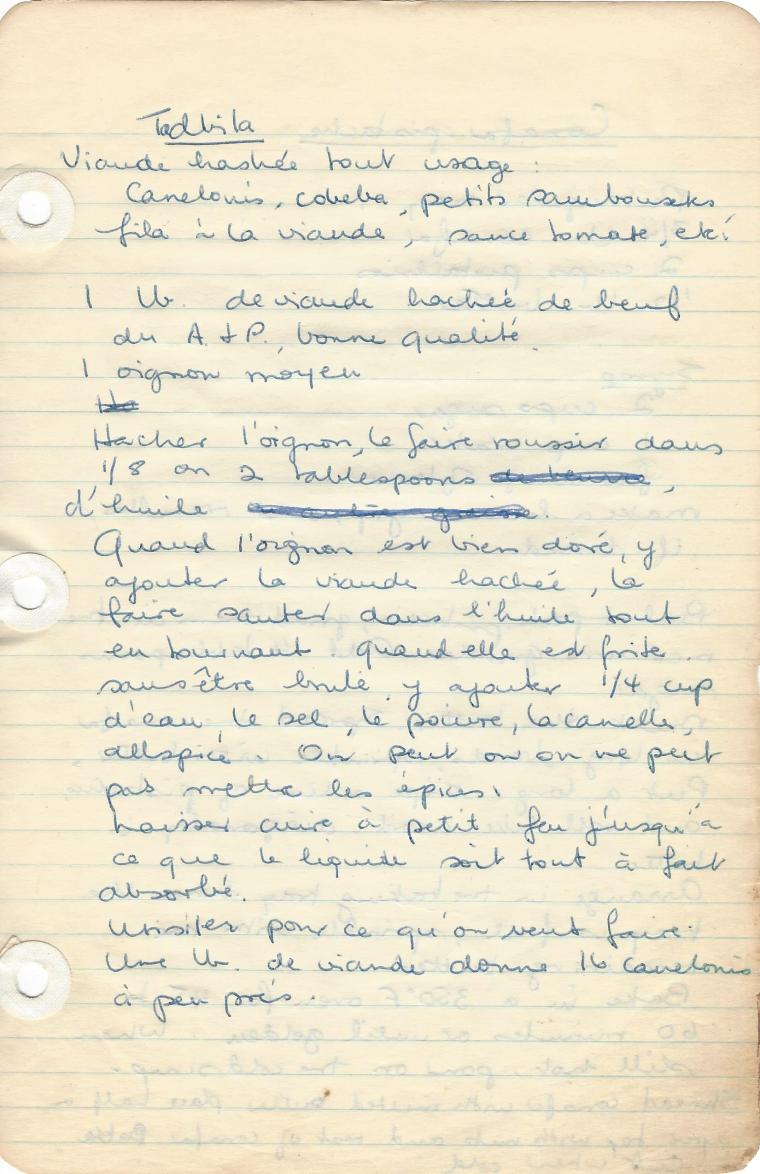 Tedbila
Viande hashée tout usage :
Canelonis, cobeba, petits sambouseks
fila à la viande, sauce tomate, etc!
1 lb. de viande hachée de beuf
du A. & P., bonne qualité.
1 oignon moyen
Hacher l'oignon, le faire roussir dans
1/8 on 2 tablespoons de beurre,
d'huile ou autre graisse.
Quand l'oignon est bien doré, y
ajouter la viande hachée, la
faire sauter dans l'huile tout
en tournant. quand elle est frite.
sans être brulé y ajouter 1/4 cup
d'eau, le sel, le poivre, la canelle,
allspice. On peut ou on ne peut
pas mettre les épices.
Laisser cuire à petit feu j'usqu'à
ce que le liquide soit tout à fait
absorbé.
Utiliser pour ce qu'on veut faire.
Une lb. de viande donne 16 canelonis
à peu près.